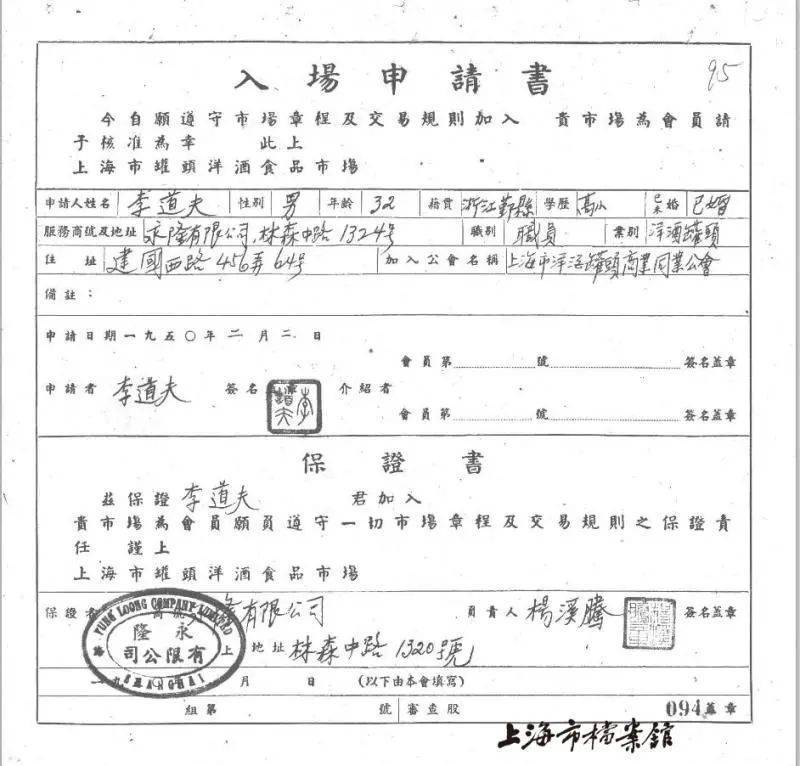 95
入場申請書
今自願遵守市場章程及交易規則加入 貴市場為會員請
予核准為幸 此上
上海市罐頭洋酒食品市場
申請人姓名 李道夫 性別 男 年齡 32 籍貫 浙江鄞縣 學歷 高小 已未婚 已婚
服務商號及地址 永隆有限公司,林森中路1324号 職別 職員 業別 洋酒罐頭
住址 建國西路456弄64号 加入公會名稱 上海市洋酒罐頭商業同業公會
備註：
申請日期一九五〇年二月二日
會員第 號 簽名蓋章
申請者 李道夫 簽名 李道夫 介紹者
會員第 號 簽名蓋章
保證書
茲保證 李道夫 君加入
貴市場為會員願負遵守一切市場章程及交易規則之保證責
任 謹上
上海市罐頭洋酒食品市場
保證者 有限公司 負責人 楊溪騰 簽名蓋章
YUNG LOONG COMPANY LIMITED
永隆
有限公司
SHANGHAI
地址 林森中路1320號
月 日 (以下由本會填寫)
組第 號 審查股 094 蓋章
上海市檔案館